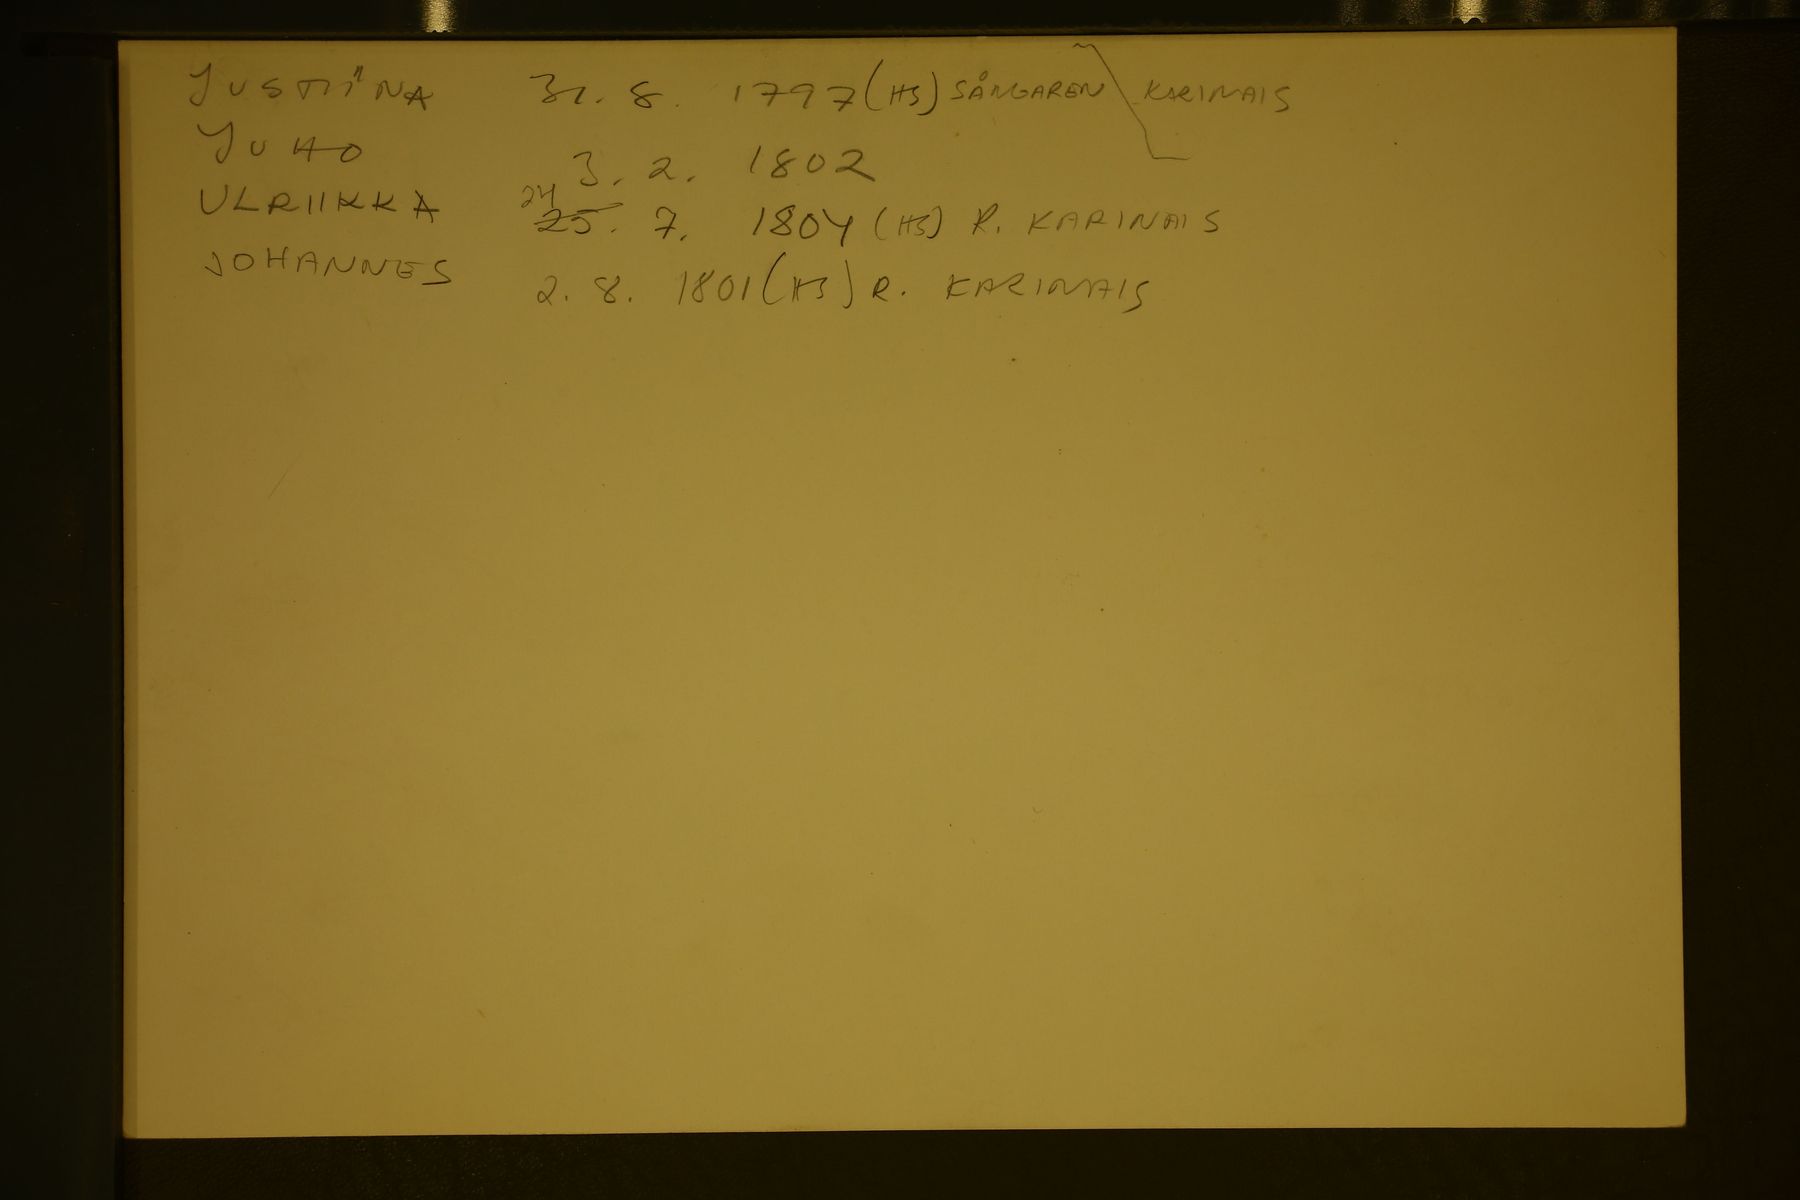 JUSTIINA 31. 8. 1797 (HS) SÅNGAREN KARINAIS
JUHO 3. 2. 1802
ULRIIKKA 24 25. 7. 1804 (HS) R. KARINAIS
JOHANNES 2. 8. 1801 (HS) R. KARINAIS